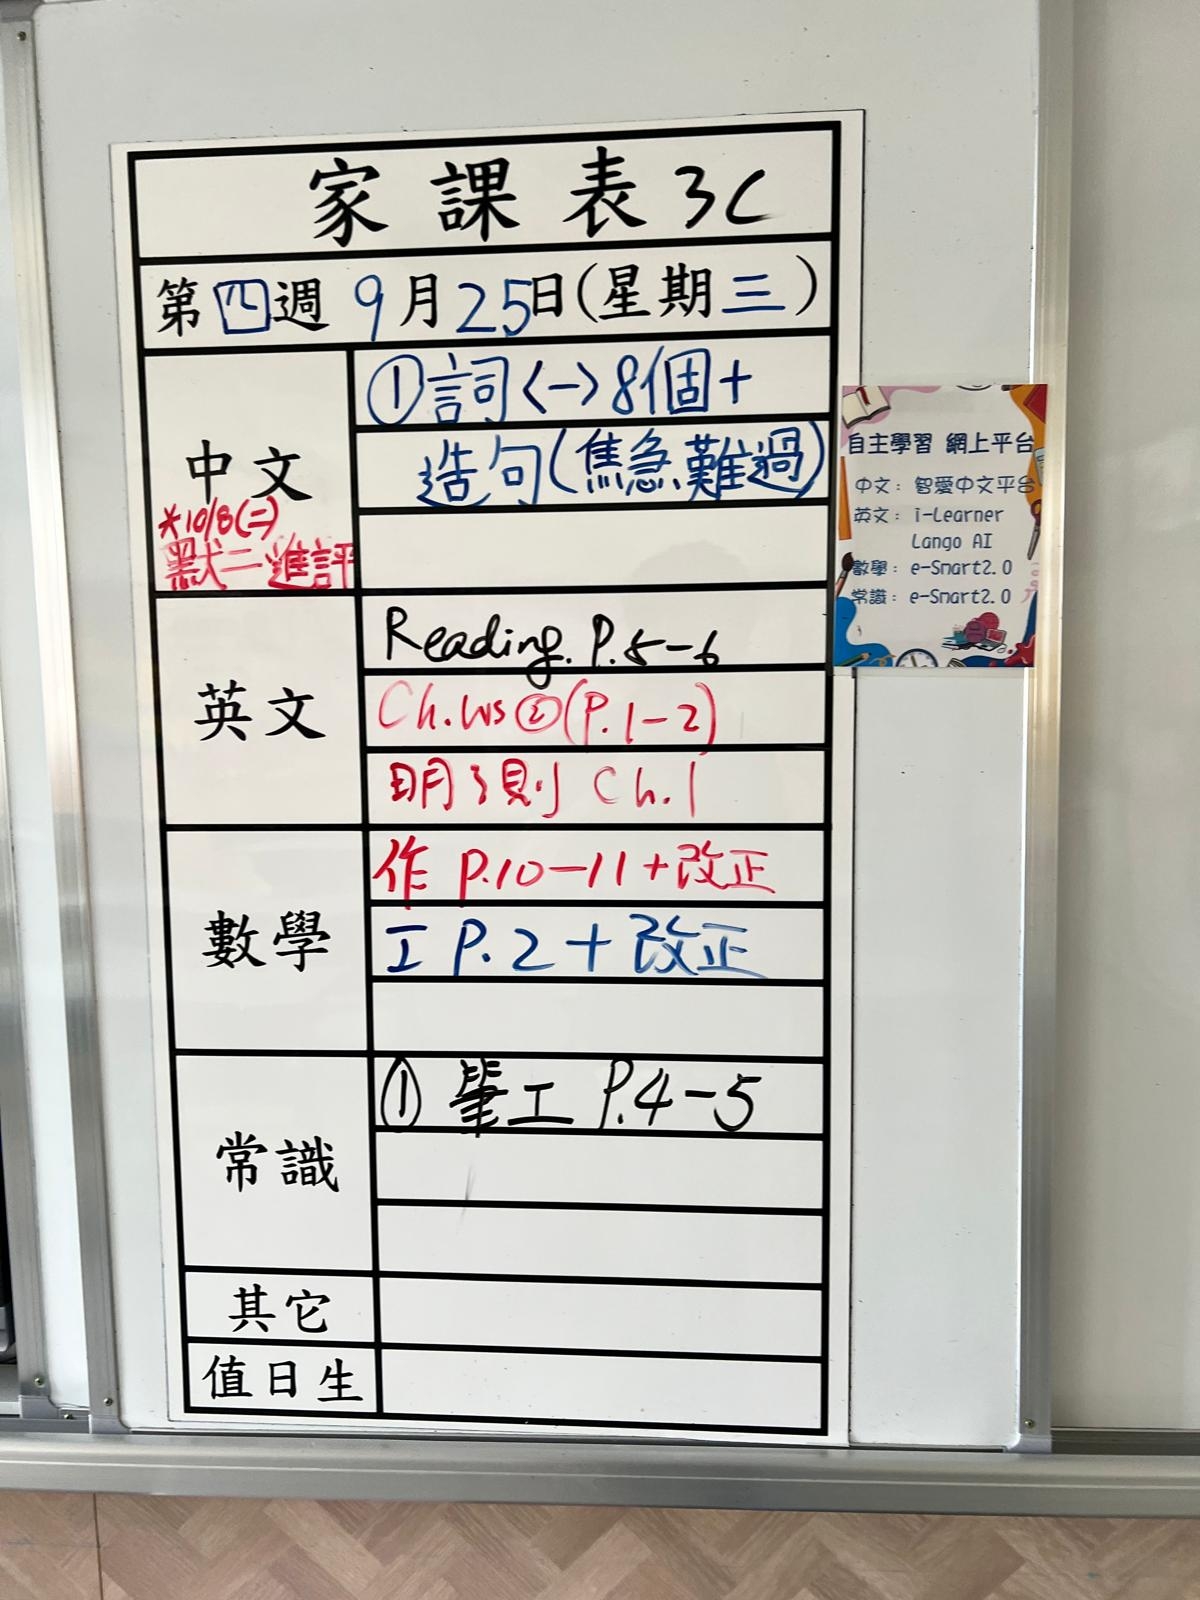 家課表 3C
第四週 9月25日(星期三)
中文
*10/8(二)
默二進評
①詞<一>8個+
造句(焦急、難過)
英文
Reading. P.5-6
Ch.Ws②(P.1-2)
明測 Ch.1
數學
作 P.10-11+改正
工 P.2+改正
常識
① 筆工 P.4-5
其它
值日生
自主學習 網上平台
中文: 智愛中文平台
英文: i-Learner
Lango AI
數學: e-Smart2.0
常識: e-Smart2.0